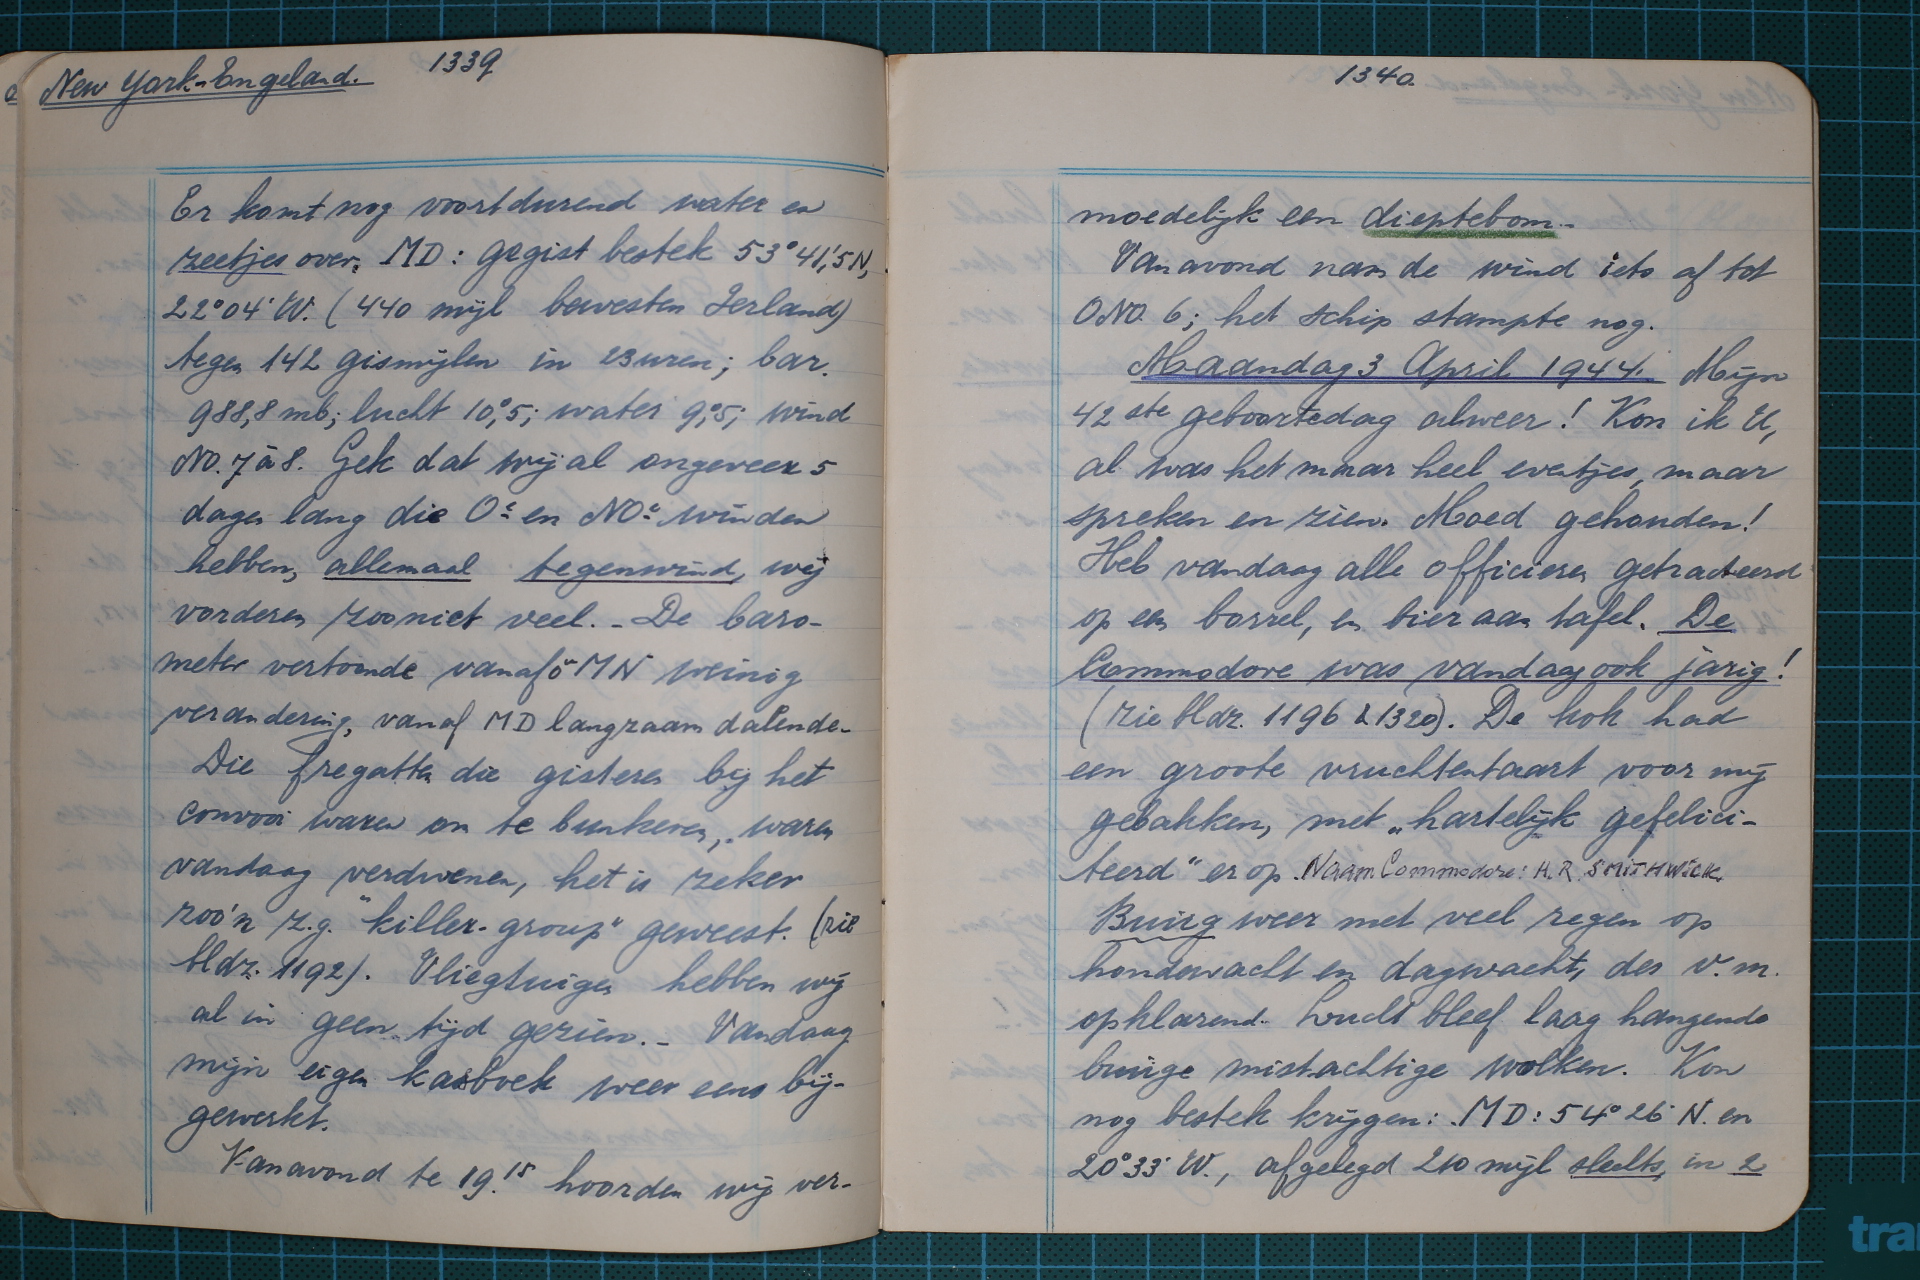 New York-Engeland.
1339
Er komt nog voortdurend water en
zeetjes over. MD: gegist bestek 53°41,'5N,
22°04' W. (440 mijl bewesten Ierland)
tegen 142 gismijlen in 23 uren; bar.
988,8 mb; lucht 10°,5; water 9°,5; wind
NO. 7 à 8. Gek dat wij al ongeveer 5
dagen lang die Oe en NOe winden
hebben, allemaal tegenwind, wij
vorderen zoo niet veel. - De baro-
meter vertoonde vanaf MN weinig
verandering, vanaf MD langzaam dalende.
Die fregatten die gisteren bij het
convooi waren om te bunkeren, waren
vandaag verdwenen, het is zeker
zoo'n z.g. "killer-group" geweest. (zie
bldz. 1192). Vliegtuigen hebben wij
al in geen tijd gezien. - Vandaag
mijn eigen kasboek weer eens bij-
gewerkt.
Vanavond te 19.15 hoorden wij ver-
1340.
moedelijk een dieptebom.-
Vanavond nam de wind iets af tot
ONO. 6; het schip stampte nog.
Maandag 3 April 1944. Mijn
42ste geboortedag alweer! Kon ik U,
al was het maar heel eventjes, maar
spreken en zien. Moed gehouden!
Heb vandaag alle officieren getracteerd
op een borrel, en bier aan tafel. De
Commodore was vandaag ook jarig!
(zie bldz. 1196 & 1320). De kok had
een groote vruchtentaart voor mij
gebakken, met „hartelijk gefelici-
teerd" er op. Naam Commodore: H.R. SMITHWICK.
Buiig weer met veel regen op
hondewacht en dagwacht, des v.m.
opklarend. Lucht bleef laag hangende
buiige mistachtige wolken. Kon
nog bestek krijgen: MD: 54°26' N. en
20°33' W., afgelegd 210 mijl slechts, in 2